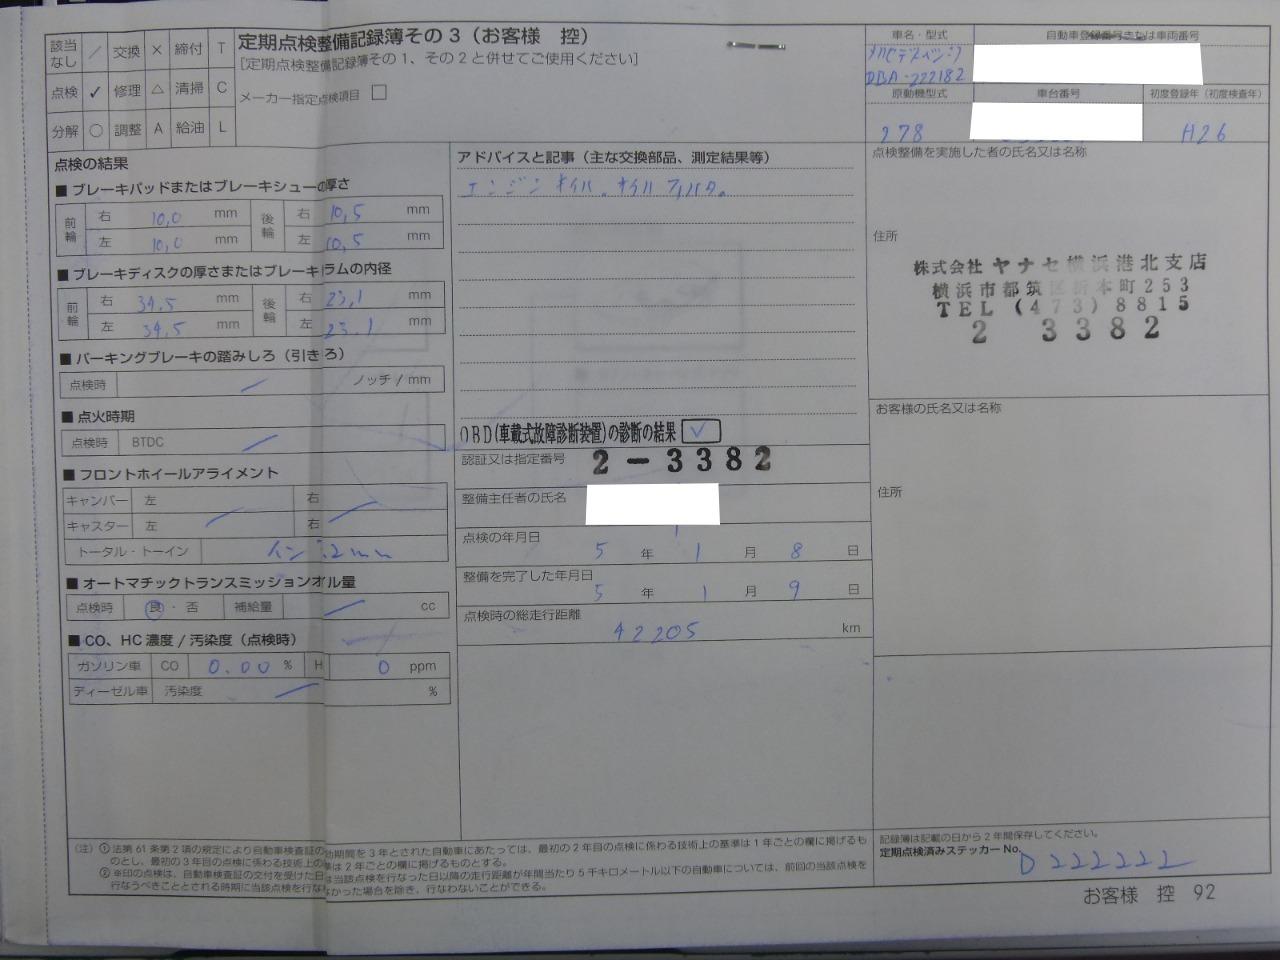 該当なし ／ 交換 × 締付 T
点検 ✓ 修理 △ 清掃 C
分解 ○ 調整 A 給油 L
定期点検整備記録簿その3（お客様 控）
［定期点検整備記録簿その1、その2と併せてご使用ください］
メーカー指定点検項目 □
車名・型式
メルセデスベンツ
DBA-222182
自動車登録番号または車両番号
原動機型式
278
車台番号
初度登録年（初度検査年）
H26
点検の結果
■ ブレーキパッドまたはブレーキシューの厚さ
前輪 右 10.0 mm 後輪 右 10,5 mm
左 10.0 mm 左 10,5 mm
■ ブレーキディスクの厚さまたはブレーキ ラムの内径
前輪 右 34.5 mm 後輪 右 23,1 mm
左 34,5 mm 左 23.1 mm
■ パーキングブレーキの踏みしろ（引き ろ）
点検時 ノッチ / mm
■ 点火時期
点検時 BTDC
■ フロントホイールアライメント
キャンバー 左 右
キャスター 左 右
トータル・トーイン イン 2mm
■ オートマチックトランスミッションオ ル量
点検時 良・否 補給量 cc
■ CO、HC濃度 / 汚染度（点検時）
ガソリン車 CO 0.00 % H 0 ppm
ディーゼル車 汚染度 %
アドバイスと記事（主な交換部品、測定結果等）
エンジンオイル。オイルフィルター。
OBD(車載式故障診断装置)の診断の結果 ✓
認証又は指定番号 2-3382
整備主任者の氏名
点検の年月日
5 年 1 月 8 日
整備を完了した年月日
5 年 1 月 9 日
点検時の総走行距離
42205 km
点検整備を実施した者の氏名又は名称
住所
株式会社 ヤナセ横浜港北支店
横浜市都筑区折本町253
TEL (473)8815
2 3382
お客様の氏名又は名称
住所
(注) ① 法第61条第2項の規定により自動車検査証の 効期間を3年とされた自動車にあたっては、最初の2年目の点検に係わる技術上の基準は1年ごとの欄に掲げるも
のとし、最初の3年目の点検に係わる技術上の 準は2年ごとの欄に掲げるものとする。
② ※印の点検は、自動車検査証の交付を受けた日 は当該点検を行なった日以降の走行距離が年間当たり5千キロメートル以下の自動車については、前回の当該点検を
行なうべきこととされる時期に当該点検を行な かった場合を除き、行なわないことができる。
記録簿は記載の日から2年間保存してください。
定期点検済みステッカー No.
D222222
お客様 控 92